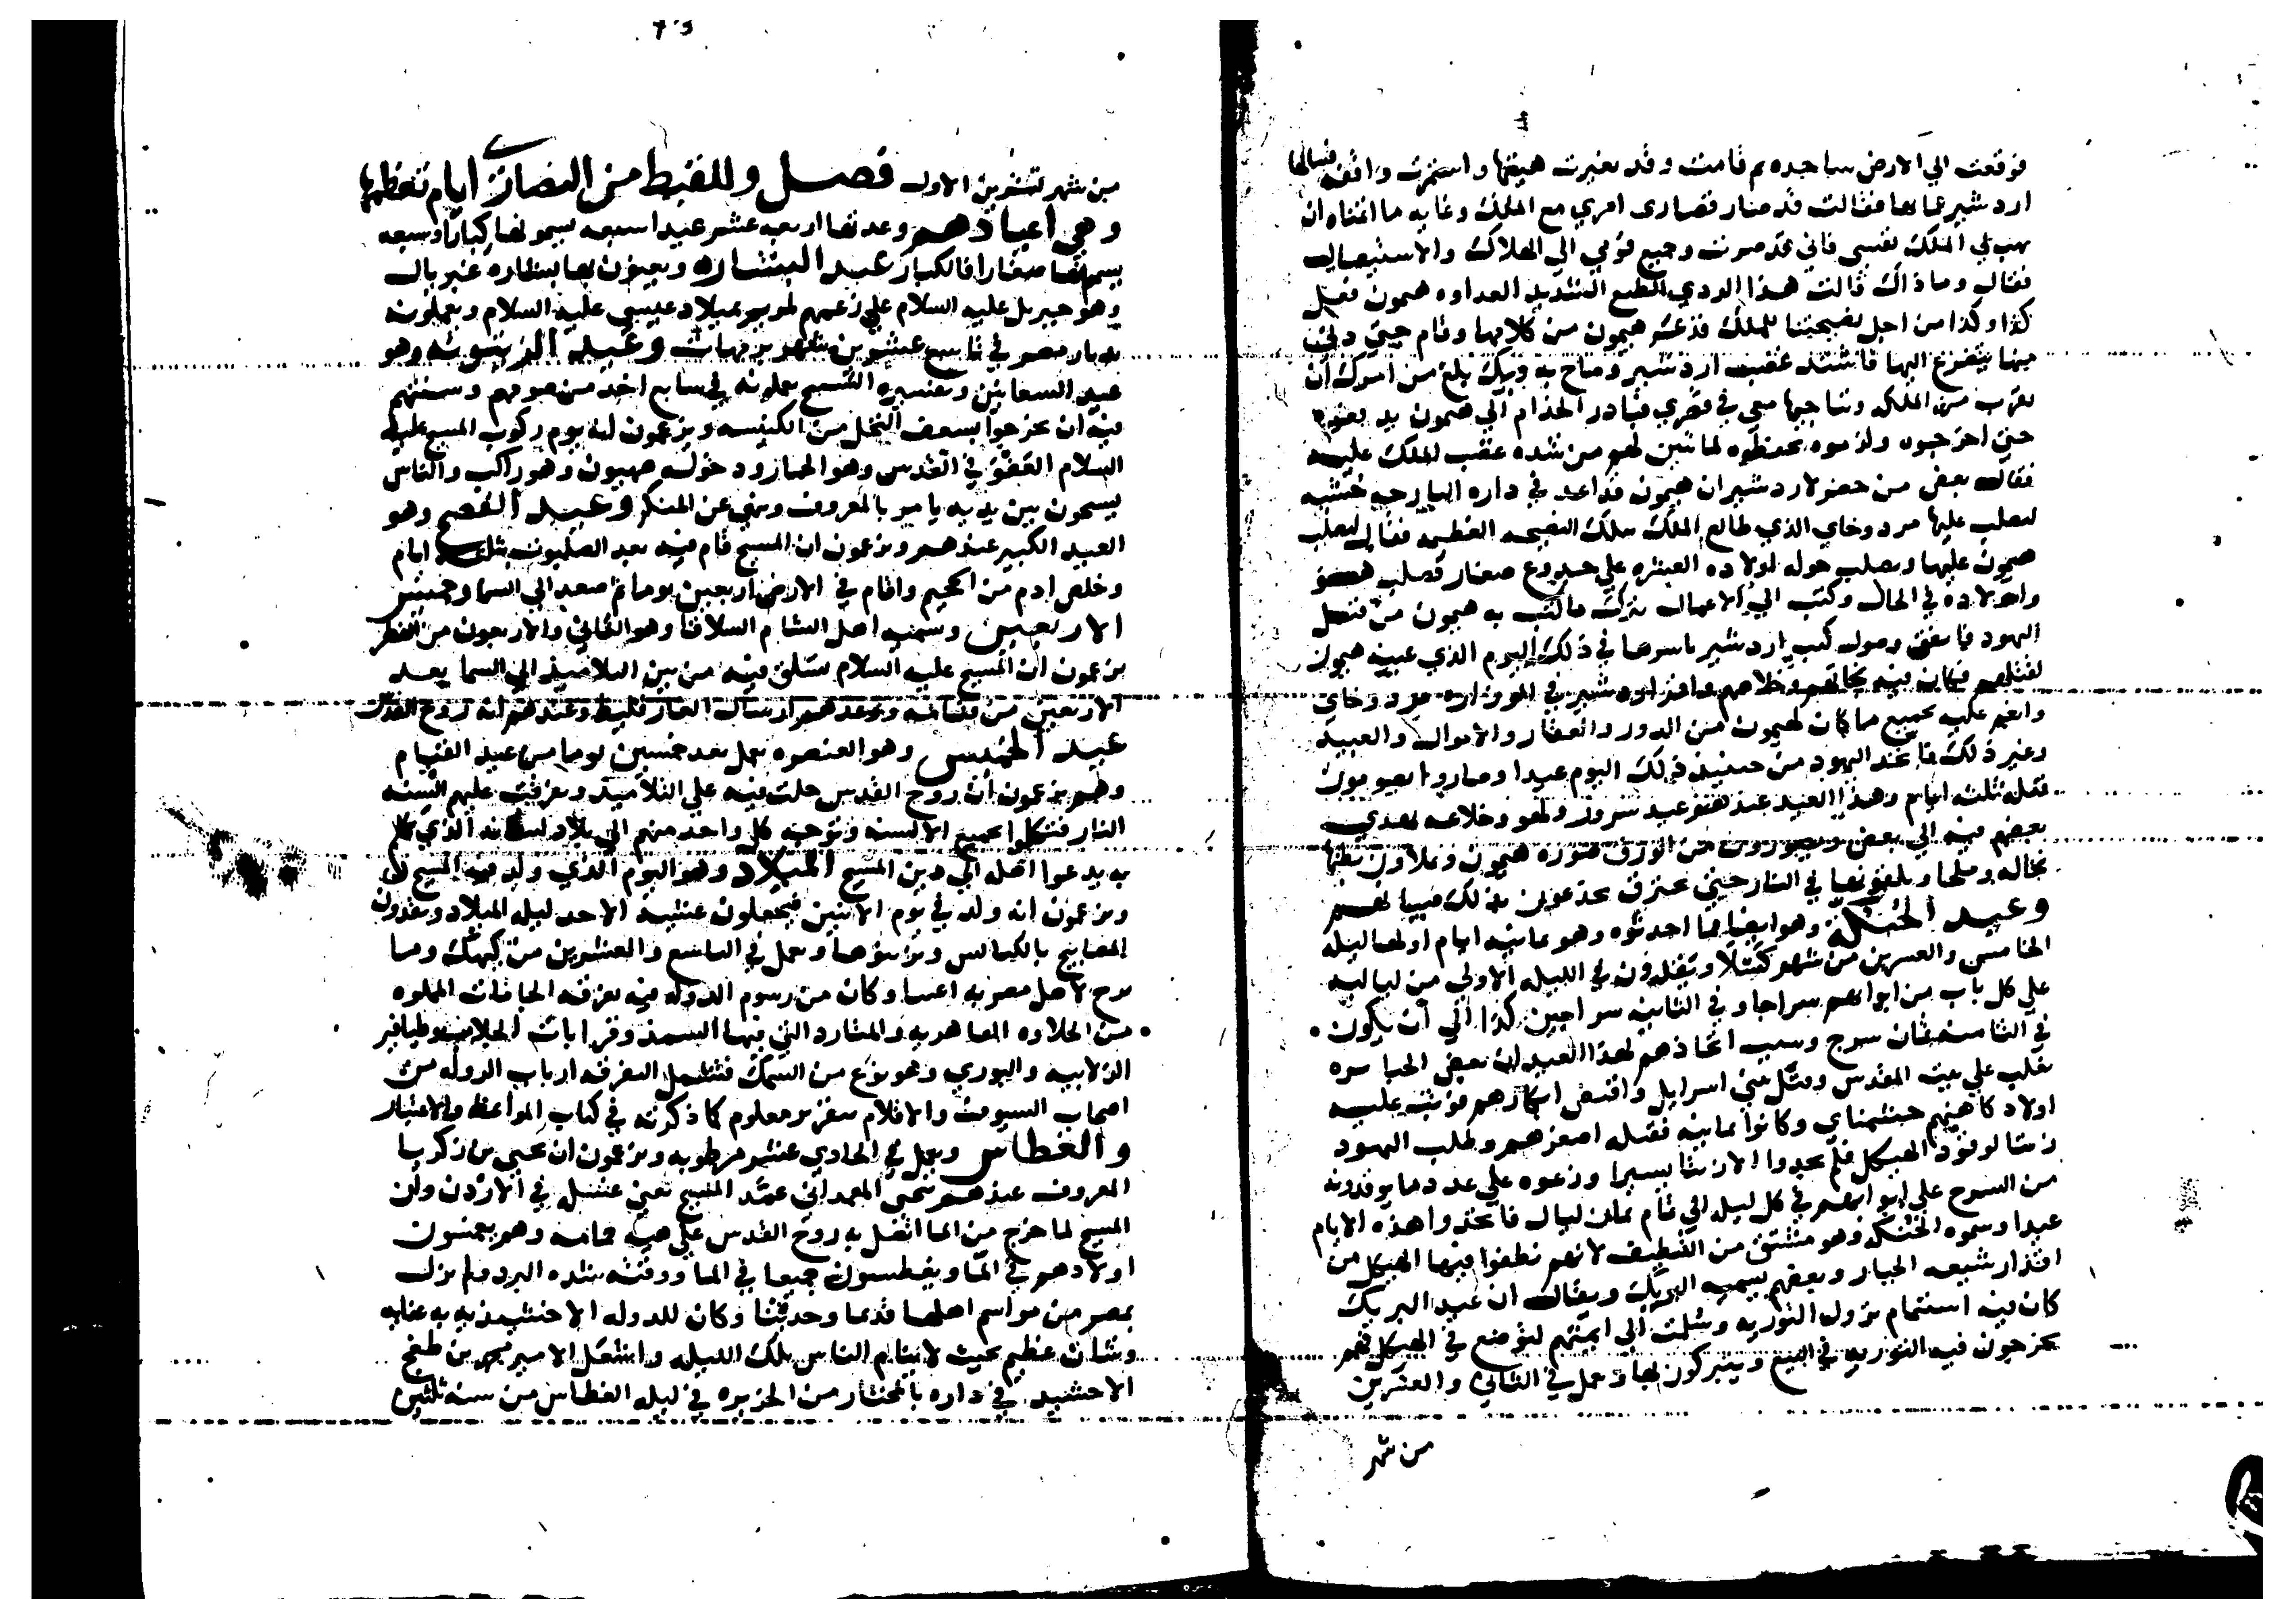 فوقعت الي الارض ساجده ثم قامت وقد تغيرت هيئتها واستمرت واقفه فسالها
اردشير عما بها فقالت قد صار قصارى امري مع الملك وغايه ما اتمناه ان
يهب لي الملك نفسي فاني قد صرت وجميع قومي الي الهلاك والاستيصال
فقال وما ذاك قالت هذا الردي الطبع الشديد العداوه هيمون فعل
كذا وكذا من اجل نصيحتنا للملك فذعر هيمون من كلامها وقام حتي دني
منها يتضرع اليها فاشتد غضب اردشير وصاح به ويلك بلغ من امرك ان
تقرب من الملكه وتناجيها معي في قصري فبادر الخدام الي هيمون
حتي اخرجوه ولزموه يحفظوه لما تبين لهم من شده غضب الملك عليه
فقال بعض من حضر لاردشير ان هيمون قد اعد في داره البارحه خشبه
ليصلب عليها مردوخاي الذي طالع الملك بتلك النصيحه العظيمه فقال ليصلب
هيمون عليها ويصلب حوله اولاده العشره علي جذوع صغار فصلب هو
واولاده في الحال وكتب الي الاعمال بترك ما كتب به هيمون من قتل
اليهود فاتفق وصول كتب اردشير باسرها في ذلك اليوم الذي عينه هيمون
لقتلهم فكان فيه نجاتهم وخلاصهم واقر اردشير في الوزاره مردوخاي
وانعم عليه بجميع ما كان لهيمون من الدور والعقار والاموال والعبيد
وغير ذلك فاتخذ اليهود من حينيذ ذلك اليوم عيدا وصاروا يصومون
قبله ثلثه ايام وهذا العيد عندهم عيد سرور ولهو وخلاعه يهدي
بعضهم فيه الي بعض ويصورون من الورق صوره هيمون ويملاون بطنها
نخاله وملحا ويلقونها في النار حتي تحترق يخدعون بذلك صبيانهم
وعيد الحنكه وهو ايضا مما احدثوه وهو ثمانيه ايام اولها ليله
الخامس والعشرين من شهر كسلا ويقدون في الليله الاولي من لياليه
علي كل باب من ابوابهم سراجا وفي الثانيه سراجين كذا الي ان يكون
في الثامنه ثمان سرج وسبب اتخاذهم لهذا العيد ان بعض الجبابره
تغلب علي بيت المقدس وقتل بني اسرايل وافتض ابكارهم فوثب عليه
اولاد كاهنهم حشمناي وكانوا ثمانيه فقتله اصغرهم وطلب اليهود
زيتا لوقود الهيكل فلم يجدوا الا زيتا يسيرا وزعوه علي عدد ما يوقدونه
من السرج علي ابوابهم في كل ليله الي تمام ثمان ليال فاتخذوا هذه الايام
عيدا وسموه الحنكه وهو مشتق من التنظيف لانهم نظفوا فيها الهيكل من
اقذار شيعه الجبار وبعضهم يسميه البريك ويقال ان عيد البريك
كان فيه استتمام نزول التوريه وسلمت الي ايمتهم لتوضع في الهيكل فهم
يخرجون فيه التوريه في البيع ويتبركون بها ويعمل في الثاني والعشرين
من شهر
من شهر تشرين الاول فصل وللقبط من النصاري ايام تعظمها
وهي اعيادهم وعدتها اربعه عشر عيدا سبعه يسمونها كبارا وسبعه
يسمونها صغارا فالكبار عيد البشاره ويعنون بها بشاره غبريال
وهو جبريل عليه السلام علي زعمهم لمريم بميلاد عيسي عليه السلام ويعملونه
بديار مصر في تاسع عشرين شهر برمهات وعيد الزيتونه وهو
عيد السعانين وتفسيره التسبيح يعملونه في سابع احد من صومهم وسنتهم
فيه ان يخرجوا بسعف النخل من الكنيسه ويزعمون انه يوم ركوب المسيح عليه
السلام العفو في القدس وهو الحمار ودخوله صهيون وهو راكب والناس
يسبحون بين يديه يامر بالمعروف وينهي عن المنكر وعيد الفصح وهو
العيد الكبير عندهم ويزعمون ان المسيح قام فيه بعد الصلبوت بثلثه ايام
وخلص ادم من الجحيم واقام في الارض اربعين يوما ثم صعد الي السما وخميس
الاربعين ويسميه اهل الشام السلاقا وهو الثاني والاربعون من الفطر
يزعمون ان المسيح عليه السلام تسلق فيه من بين التلاميذ الي السما بعد
الاربعين من قيامه ووعدهم ارسال الفارقليط وعندهم انه روح القدس
عيد الخميس وهو العنصره يعمل بعد خمسين يوما من عيد القيام
وهم يزعمون ان روح القدس حلت فيه علي التلاميذ وتفرقت عليهم السنه
النار فتكلموا بجميع الالسنه وتوجه كل واحد منهم الي بلاد لسانه الذي تكلم
به يدعوا اهله الي دين المسيح الميلاد وهو اليوم الذي ولد فيه المسيح
ويزعمون انه ولد في يوم الاثنين فيجعلون عشيه الاحد ليله الميلاد ويقدون
المصابيح بالكنايس ويزينوها ويعمل في التاسع والعشرين من كيهك وما
برح لاهل مصر به اعتنا وكان من رسوم الدوله فيه تفرقه الجامات المملوه
من الحلاوه القاهريه والمتارد التي فيها السميذ وقرابات الجلاب وطيافير
الزلابيه والبوري وهو نوع من السمك فتشمل التفرقه ارباب الدوله من
اصحاب السيوف والاقلام بتقرير معلوم كما ذكرته في كتاب المواعظ والاعتبار
والغطاس ويعمل في الحادي عشر من طوبه ويزعمون ان يحيي بن زكريا
المعروف عندهم بيحي المعمداني عمد المسيح يعني غسله في الاردن وان
المسيح لما خرج من الما اتصل به روح القدس علي هيه حمامه وهو يغمسون
اولادهم في الما ويغطسون جميعا في الما ووقته شده البرد ولم يزل
بمصر من مواسم اهلها قديما وحديثا وكان للدوله الاخشيذيه به عنايه
وشان عظيم بحيث لا ينام الناس تلك الليله واشعل الامير محمد بن طغج
الاخشيد في داره بالمختار من الجزيره في ليله الغطاس من سنه ثلثين